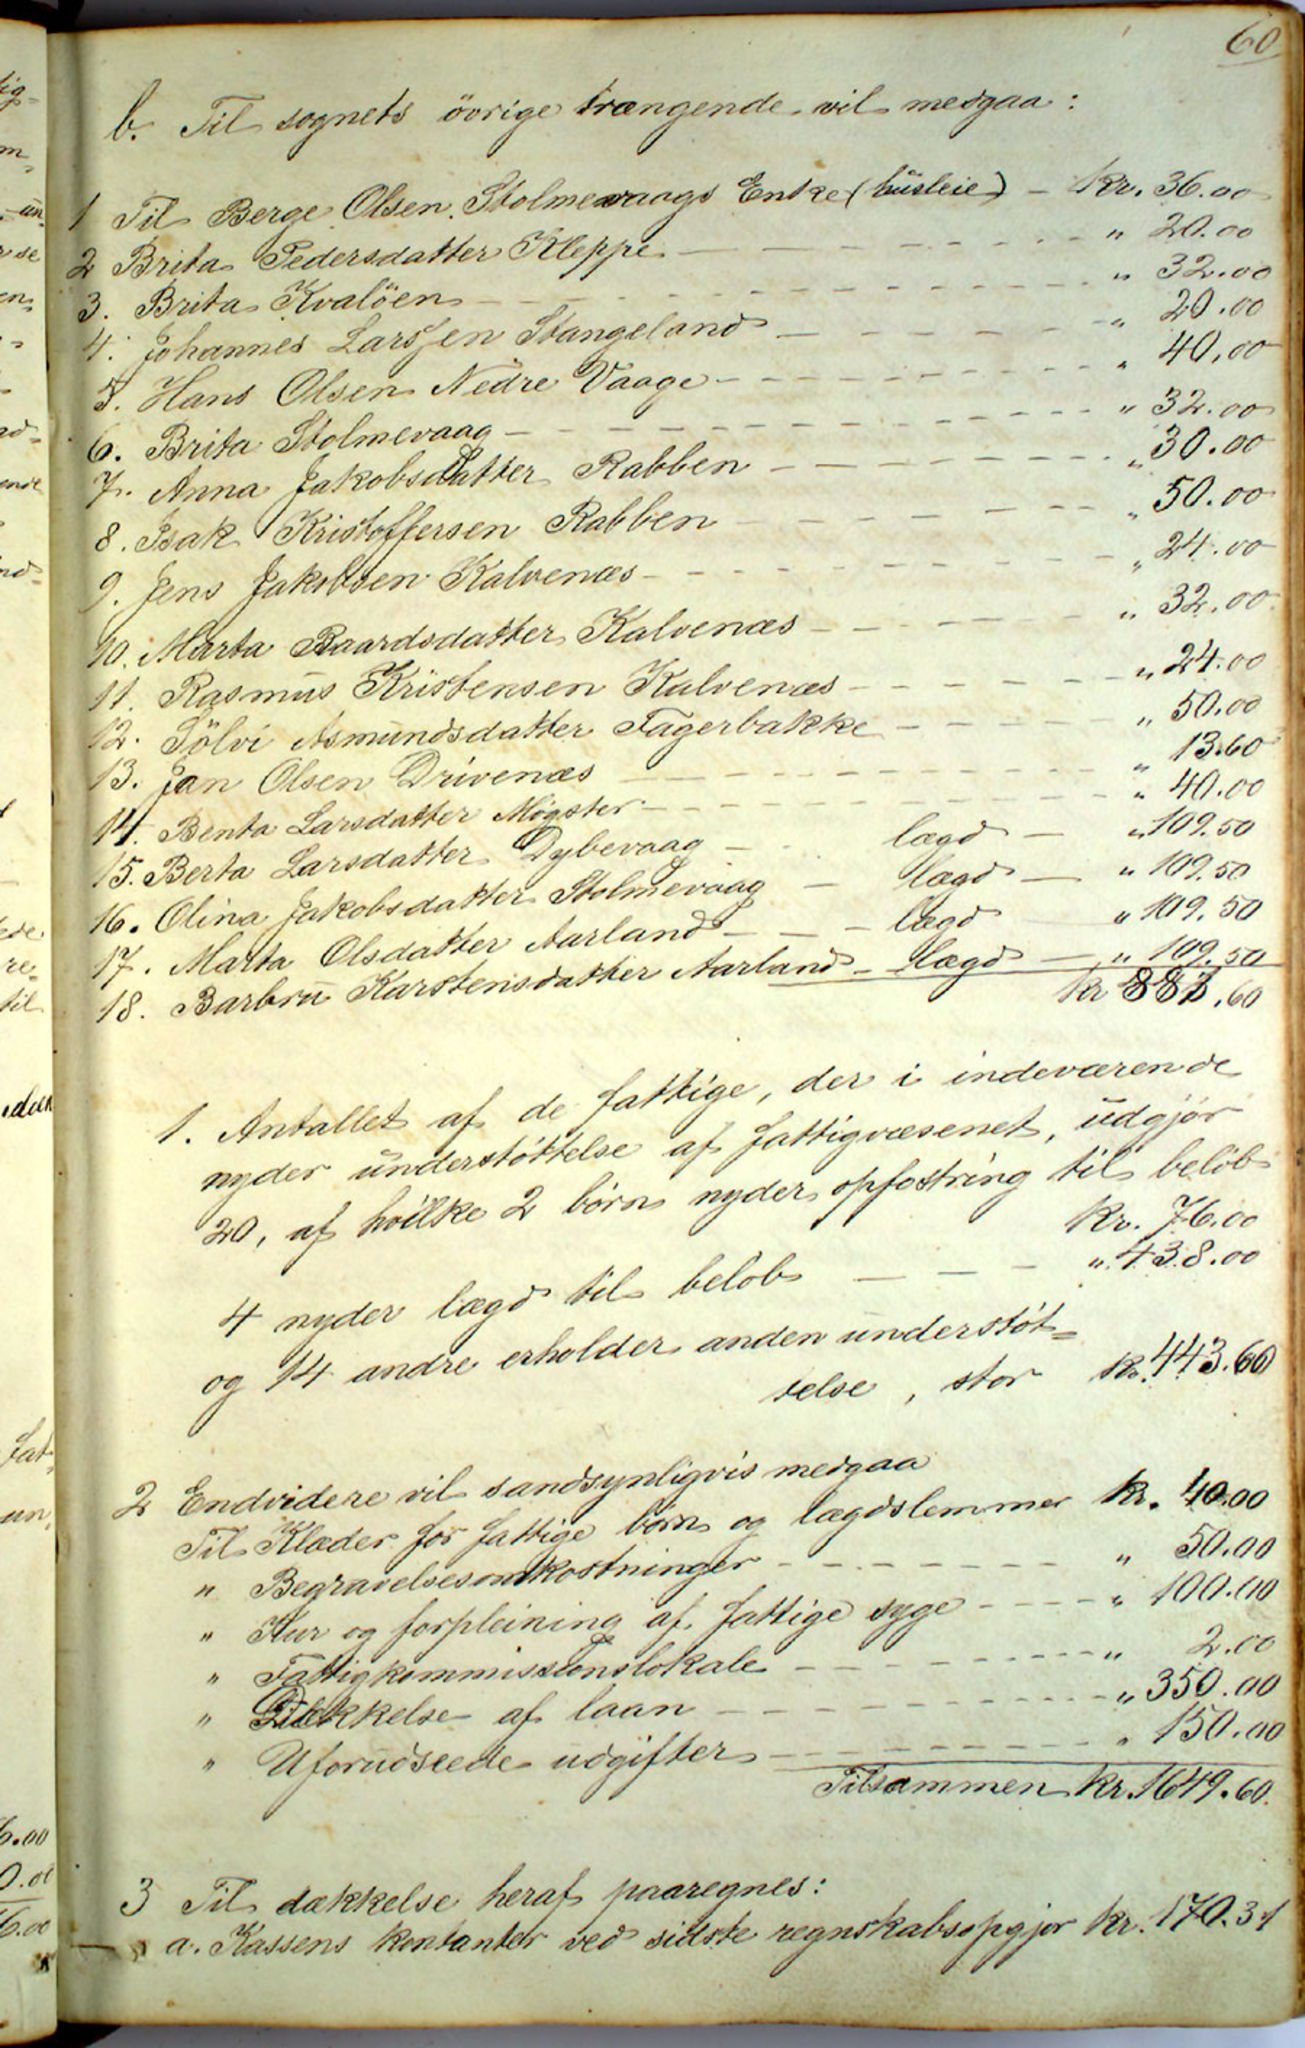 60
b. Til sognets övrige trængende vil medgaa:
1 Til Berge Olsen Stolmevaags Enke (husleie) - kr. 36.00
2 Brita Pedersdatter Kleppe - " 20.00
3. Brita Kvalöen - " 32.00
4. Johannes Larssen Stangeland - " 20.00
5. Hans Olsen Nedre Vaage - " 40.00
6. Brita Stolmevaag - " 32.00
7. Anna Jakobsdatter Rabben - " 30.00
8. Isak Kristoffersen Rabben - " 50.00
9. Jens Jakobsen Kalvenæs - " 24.00
10. Marta Baardsdatter Kalvenæs - " 32.00
11. Rasmus Kristensen Kalvenæs - " 24.00
12. Sölvi Asmundsdatter Fagerbakke - " 50.00
13. Jan Olsen Drivenæs - " 13.60
14. Benta Larsdatter Møgster - " 40.00
15. Berta Larsdatter Dybevaag - lægd - " 109.50
16. Olina Jakobsdatter Stolmevaag - lægd - " 109.50
17. Marta Olsdatter Aarland - lægd - " 109.50
18. Barbru Karstensdatter Aarland - lægd - " 109.50
kr 881.60
1. Antallet af de fattige, der i indeværende
nyder understøttelse af fattigvæsenet, udgjør
20, af hvilke 2 börn nyder opfostring til beløb
kr. 76.00
4 nyder lægd til beløb - - - " 438.00
og 14 andre erholder anden understøt=
telse, stor kr. 443.60
2 Endvidere vil sandsynligvis medgaa
Til Klæder for fattige börn og lægdslemmer kr. 40.00
" Begravelsesomkostninger - " 50.00
" Kur og forpleining af fattige syge - " 100.00
" Fattigkommissionslokale - " 2.00
" Dækkelse af laan - " 350.00
" Uforudseede udgifter - " 150.00
Tilsammen kr. 1649.60.
3 Til dækkelse heraf paaregnes:
a. Kassens kontanter ved sidste regnskabsopgjør kr. 170.31